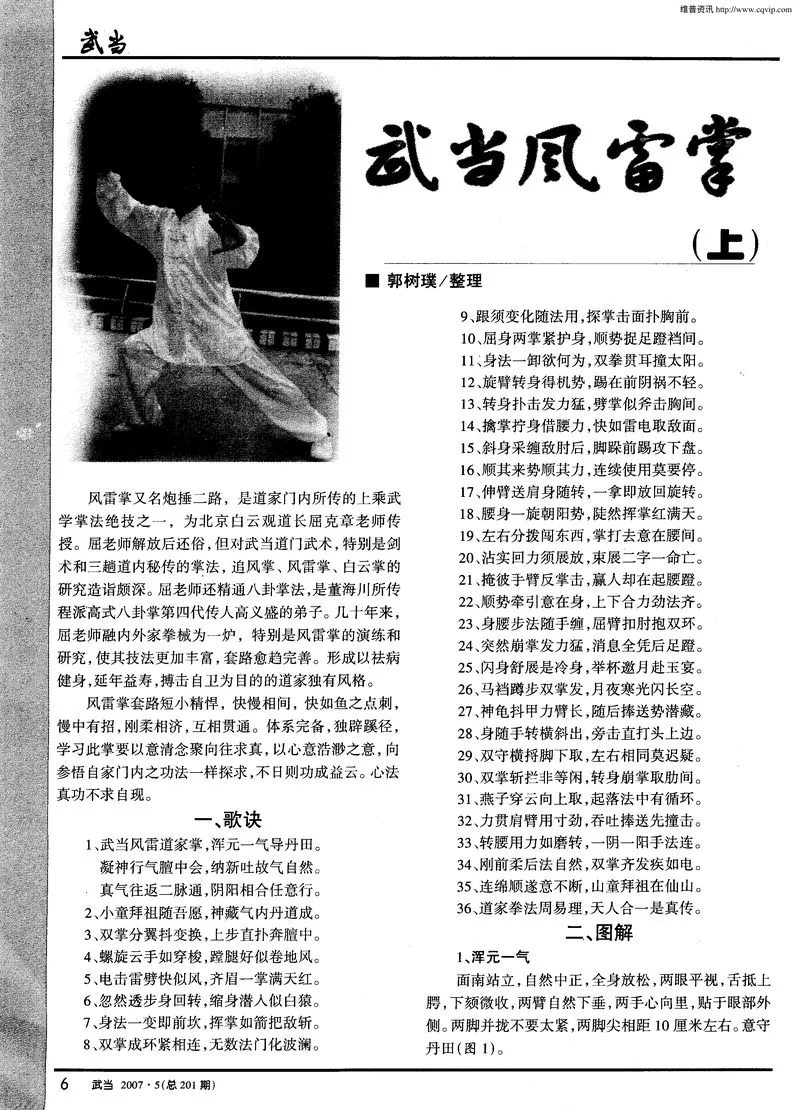 维普资讯 http://www.cqvip.com
武当
武当风雷掌
(上)
■ 郭树璞/整理
风雷掌又名炮捶二路，是道家门内所传的上乘武
学掌法绝技之一，为北京白云观道长屈克章老师传
授。屈老师解放后还俗，但对武当道门武术，特别是剑
术和三趟道内秘传的掌法，追风掌、风雷掌、白云掌的
研究造诣颇深。屈老师还精通八卦掌法，是董海川所传
程派高式八卦掌第四代传人高义盛的弟子。几十年来，
屈老师融内外家拳械为一炉，特别是风雷掌的演练和
研究，使其技法更加丰富，套路愈趋完善。形成以祛病
健身，延年益寿，搏击自卫为目的的道家独有风格。
风雷掌套路短小精悍，快慢相间，快如鱼之点刺，
慢中有招，刚柔相济，互相贯通。体系完备，独辟蹊径，
学习此掌要以意清念聚向往求真，以心意浩渺之意，向
参悟自家门内之功法一样探求，不日则功成益云。心法
真功不求自现。
一、歌诀
1、武当风雷道家掌，浑元一气导丹田。
凝神行气膻中会，纳新吐故气自然。
真气往返二脉通，阴阳相合任意行。
2、小童拜祖随吾愿，神藏气内丹道成。
3、双掌分翼抖变换，上步直扑奔膻中。
4、螺旋云手如穿梭，蹚腿好似卷地风。
5、电击雷劈快似风，齐眉一掌满天红。
6、忽然透步身回转，缩身潜人似白猿。
7、身法一变即前坎，挥掌如箭把敌斩。
8、双掌成环紧相连，无数法门化波澜。
9、跟须变化随法用，探掌击面扑胸前。
10、屈身两掌紧护身，顺势捉足蹬裆间。
11、身法一卸欲何为，双拳贯耳撞太阳。
12、旋臂转身得机势，踢在前阴祸不轻。
13、转身扑击发力猛，劈掌似斧击胸间。
14、擒掌拧身借腰力，快如雷电取敌面。
15、斜身采缠敌肘后，脚跺前踢攻下盘。
16、顺其来势顺其力，连续使用莫要停。
17、伸臂送肩身随转，一拿即放回旋转。
18、腰身一旋朝阳势，陡然挥掌红满天。
19、左右分拨闯东西，掌打去意在腰间。
20、沾实回力须展放，束展二字一命亡。
21、掩彼手臂反掌击，赢人却在起腰蹬。
22、顺势牵引意在身，上下合力劲法齐。
23、身腰步法随手缠，屈臂扣肘抱双环。
24、突然崩掌发力猛，消息全凭后足蹬。
25、闪身舒展是冷身，举杯邀月赴玉宴。
26、马裆蹲步双掌发，月夜寒光闪长空。
27、神龟抖甲力臂长，随后捧送势潜藏。
28、身随手转横斜出，旁击直打头上边。
29、双守横捋脚下取，左右相同莫迟疑。
30、双掌斩拦非等闲，转身崩掌取肋间。
31、燕子穿云向上取，起落法中有循环。
32、力贯肩臂用寸劲，吞吐捧送先撞击。
33、转腰用力如磨转，一阴一阳手法连。
34、刚前柔后法自然，双掌齐发疾如电。
35、连绵顺遂意不断，山童拜祖在仙山。
36、道家拳法周易理，天人合一是真传。
二、图解
1、浑元一气
面南站立，自然中正，全身放松，两眼平视，舌抵上
腭，下颏微收，两臂自然下垂，两手心向里，贴于眼部外
侧。两脚并拢不要太紧，两脚尖相距 10 厘米左右。意守
丹田(图 1)。
6 武当 2007·5(总 201 期)